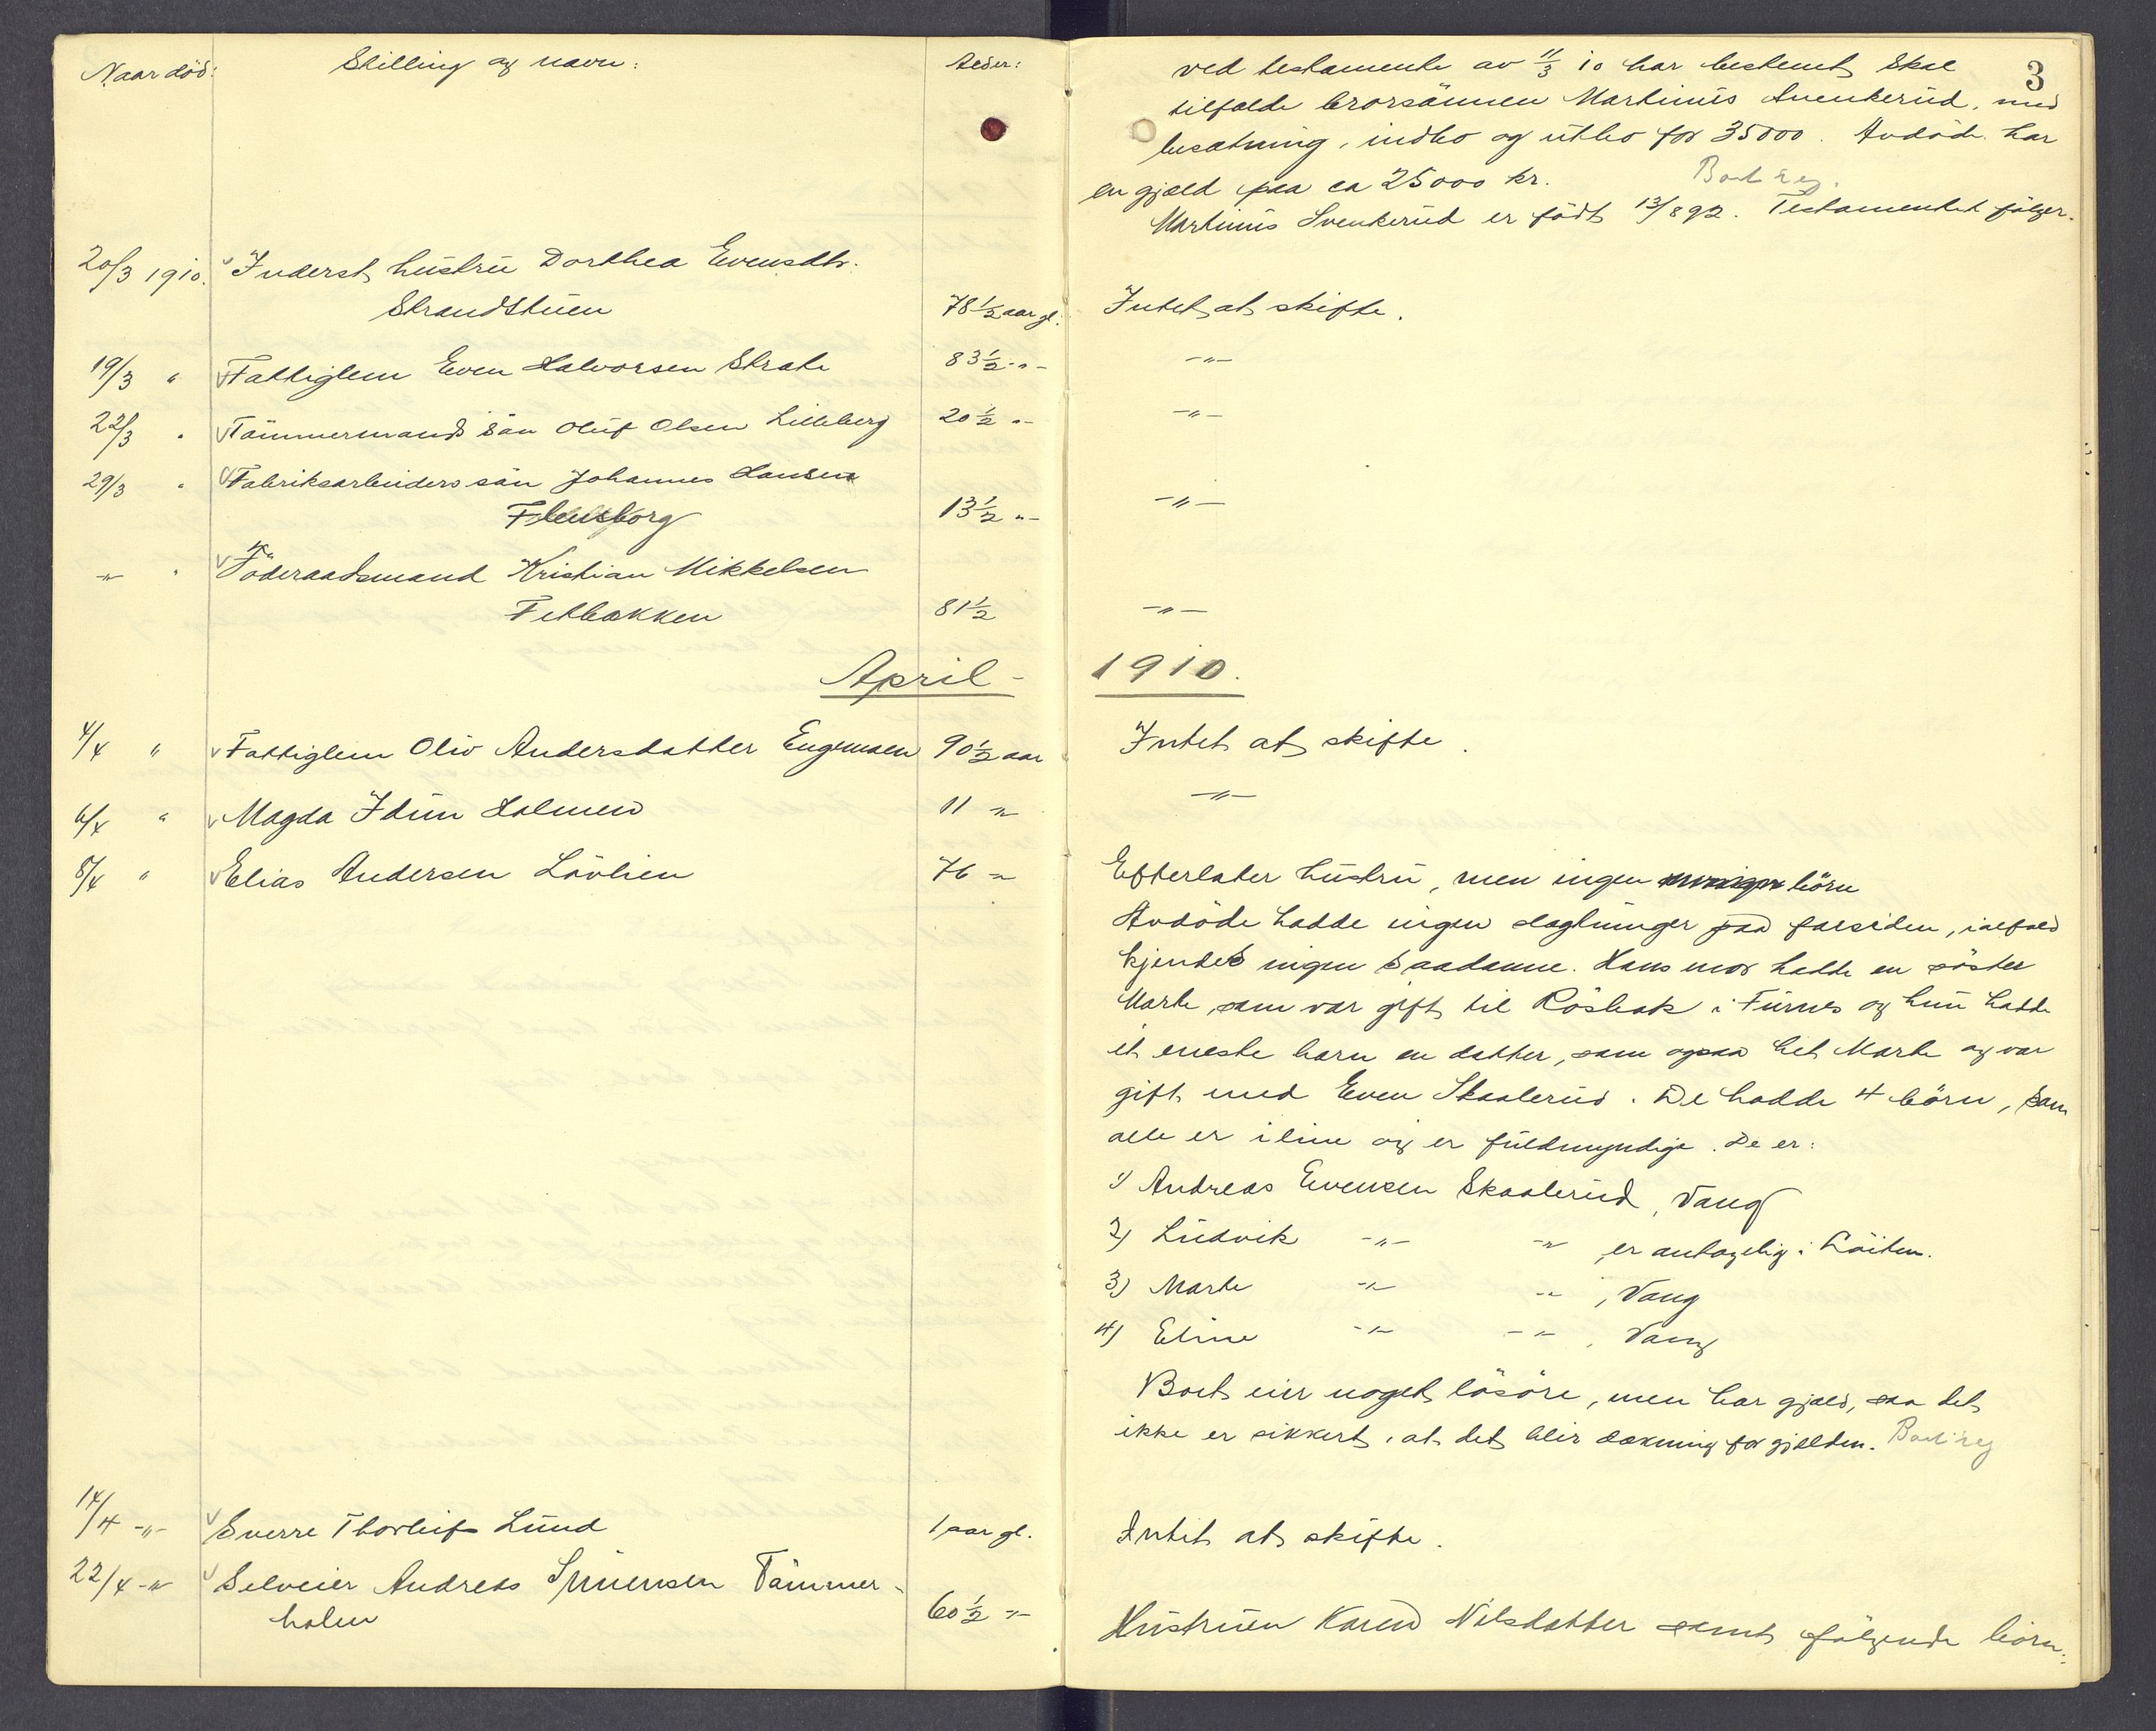 Naar död:
Stilling og navn:
Alder:
20/3 1910. Inderst hustru Dorthea Evensdtr.
Strandstuen 78 1/2 aar gl.
19/3 " Fattiglem Even Halvorsen Strate 83 1/2 -"-
22/3 " Tömmermands sön Oluf Olsen Lilleberg 20 1/2 "-
29/3 " Fabriksarbeiders sön Johannes Hansen
Flensborg 13 1/2 "-
-"- " Föderaadsmand Kristian Mikkelsen
Fetbakken 81 1/2
April -
4/4 " Fattiglem Oliv Andersdatter Engemoen 90 1/2 aar
6/4 " Magda Idun Holmen 11 -"-
8/4 " Elias Andersen Lövlien 76 -"-
14/4 -"- Sverre Thorleif Lund 1 aar gl.
22/4 -"- Selveier Andreas Simensen Tömmer-
holen 60 1/2 -"-
3
ved testamente av 11/3 10 har bestemt skal
tilfalde brorsönnen Martinus Svenkerud, med
besætning, indbo og utbo for 35000. Avdöde har
en gjæld paa ca 25000 kr.
Martinus Svenkerud er födt 13/8 92. Testamentet fölger.
Intet at skifte.
-"-
-"-
-"-
-"-
1910.
Intet at skifte.
-"-
Efterlater hustru, men ingen börn
Avdöde hadde ingen slegtninger paa farsiden, ialfald
kjendes ingen saadanne. Hans mor hadde en söster
Marte, som var gift til Rösbak i Furnes og hun hadde
et eneste barn en datter, som ogsaa het Marte og var
gift med Even Skaalerud. De hadde 4 börn, som
alle er ilive og er fuldmyndige. De er:
1) Andreas Evensen Skaalerud, Vang
2) Ludvik -"- -"- er antagelig i Löiten.
3) Marte -"- -"-, Vang
4) Eline -"- -"-, Vang
Boet eier noget lösöre, men har gjæld, saa det
ikke er sikkert, at det blir dækning for gjælden.
Intet at skifte.
Hustruen Karen Nilsdatter samt fölgende börn: